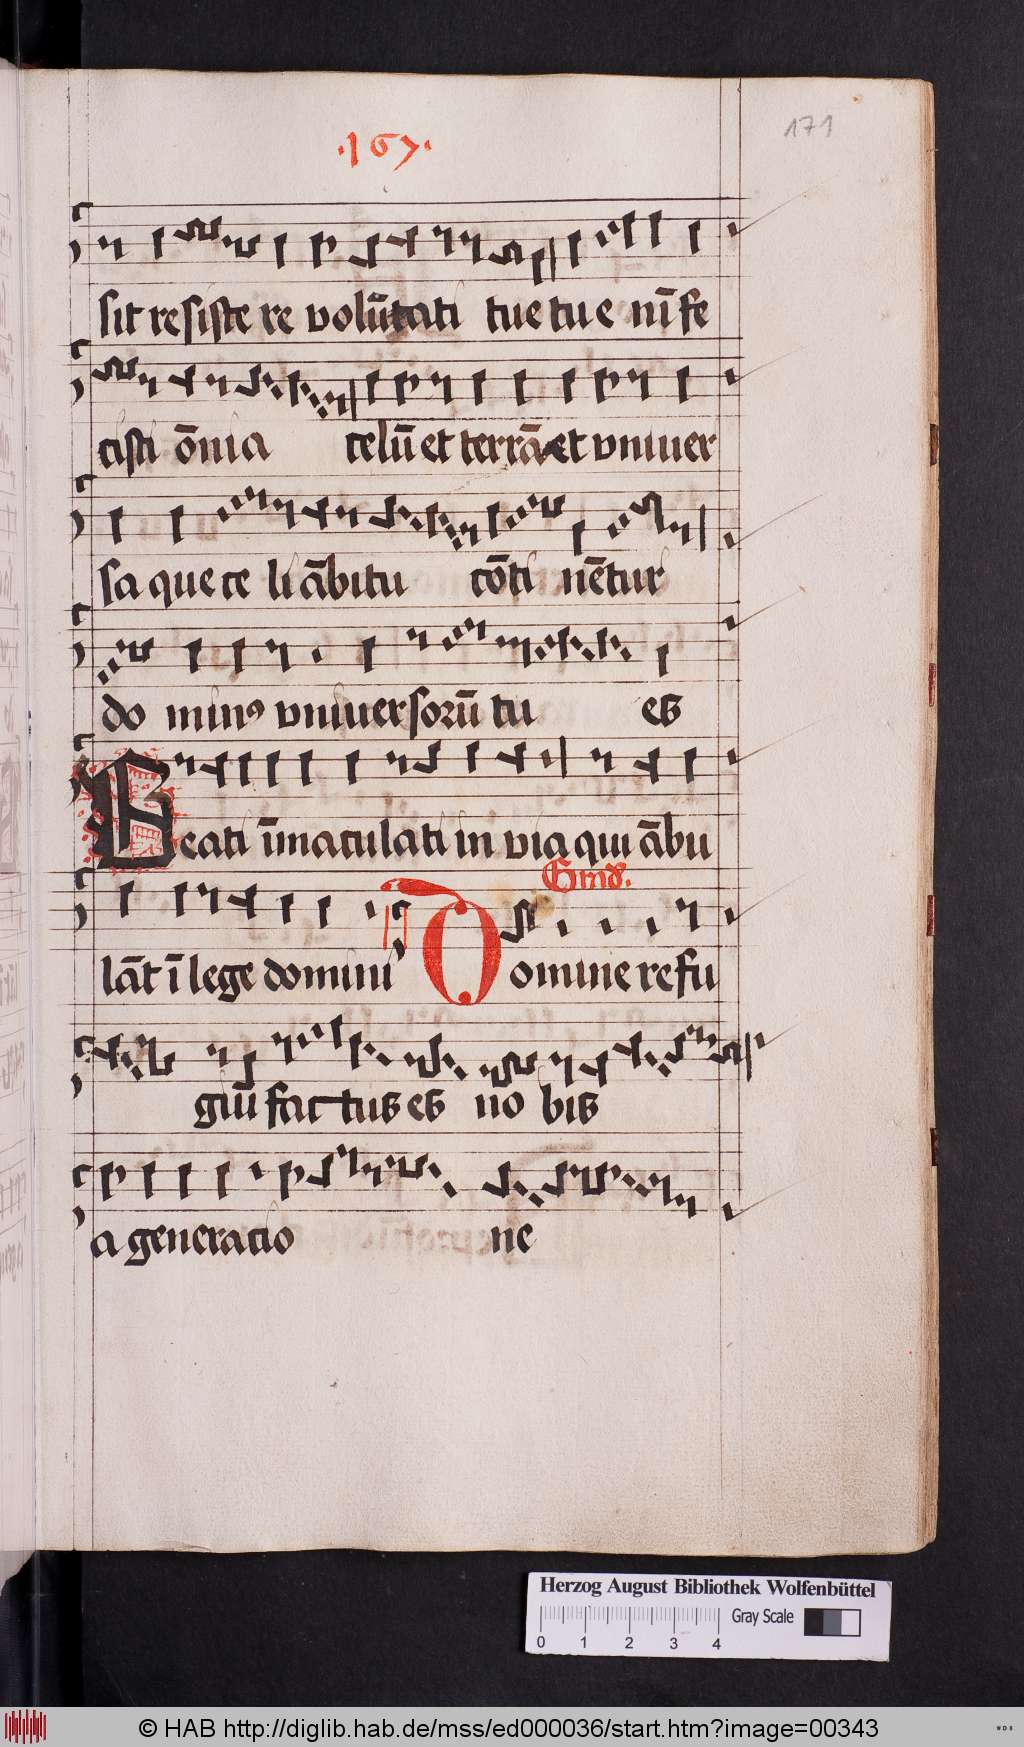 171
·167·
sit resistere volūtati tue tu eni̅ fe
cisti o̅mia celū et terrā et vniuer
sa que celi ābitu co̅ti ne̅tur
do minꝯ vniuersorū tu es
Beati i̅maculati in via qui ābu
Grad̅.
lāt ī lege domini Domine refu
giū factus es no bis
a generacio ne
Herzog August Bibliothek Wolfenbüttel
0 1 2 3 4
Gray Scale
© HAB http://diglib.hab.de/mss/ed000036/start.htm?image=00343